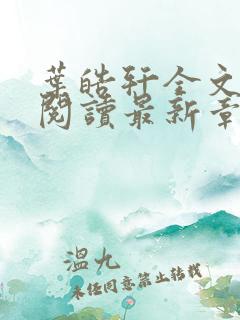 葉皓軒全文
閱讀最新章
溫九
未經同意禁止轉載